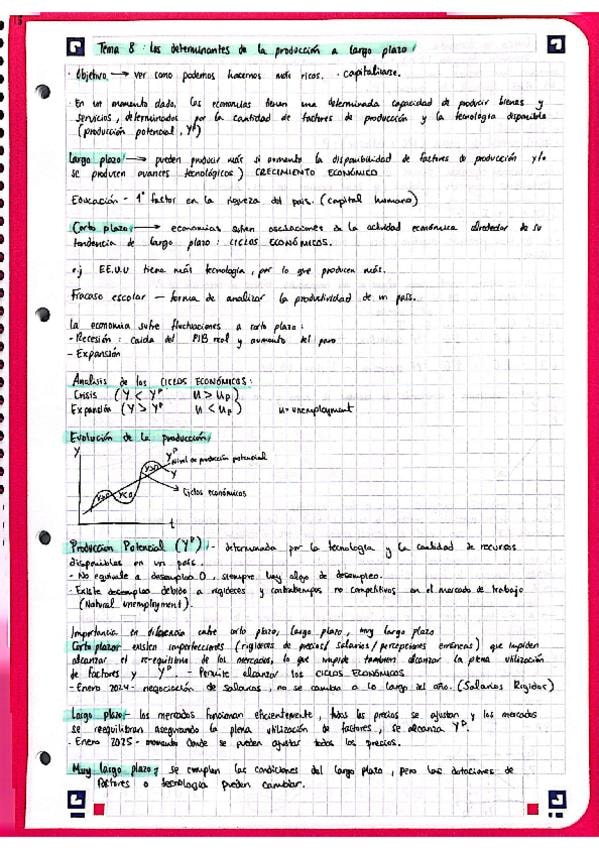 Tema 8: Los determinantes de la producción a largo plazo
· Objetivo → ver como podemos hacernos más ricos. · capitalizarse.
· En un momento dado, las economías tienen una determinada capacidad de producir bienes y
servicios, determinados por la cantidad de factores de producción y la tecnología disponible
(producción potencial, Yᴾ)
Largo plazo: → pueden producir más si aumenta la disponibilidad de factores de producción y/o
se producen avances tecnológicos) CRECIMIENTO ECONÓMICO
Educación - 1º factor en la riqueza del país. (capital humano)
Corto plazo: → economías sufren oscilaciones de la actividad económica alrededor de su
tendencia de largo plazo: CICLOS ECONÓMICOS.
ej EE.UU tiene más tecnología, por lo que producen más.
Fracaso escolar — forma de analizar la productividad de un país.
La economía sufre fluctuaciones a corto plazo:
- Recesión: caída del PIB real y aumento del paro
- Expansión
Analisis de los CICLOS ECONÓMICOS:
Crisis (Y < Yᴾ u > up)
Expansión (Y > Yᴾ u < up) u = unemployment
Evolución de la producción:
Y
Yᴾ Nivel de producción potencial
Y
Ciclos económicos
t
Produccion Potencial (Yᴾ): - determinada por la tecnología y la cantidad de recursos
disponibles en un país.
- No equivale a desempleo 0, siempre hay algo de desempleo.
- Existe desempleo debido a rigideces y contratiempos no competitivos en el mercado de trabajo
(Natural unemployment).
Importancia en diferencia entre corto plazo, largo plazo, muy largo plazo
Corto plazo: existen imperfecciones (rigideces de precios/ salarios/ percepciones erróneas) que impiden
alcanzar el re-equilibrio de los mercados, lo que impide también alcanzar la plena utilización
de factores y Yᴾ. - Permite alcanzar los CICLOS ECONÓMICOS
- Enero 2024 - negociación de salarios, no se cambia a lo largo del año. (Salarios Rígidos)
Largo plazo: - los mercados funcionan eficientemente, todos los precios se ajustan y los mercados
se reequilibran asegurando la plena utilización de factores, se alcanza Yᴾ.
- Enero 2025 - momento donde se pueden ajustar todos los precios.
Muy largo plazo: se cumplen las condiciones del largo plazo, pero las dotaciones de
factores o tecnología pueden cambiar.